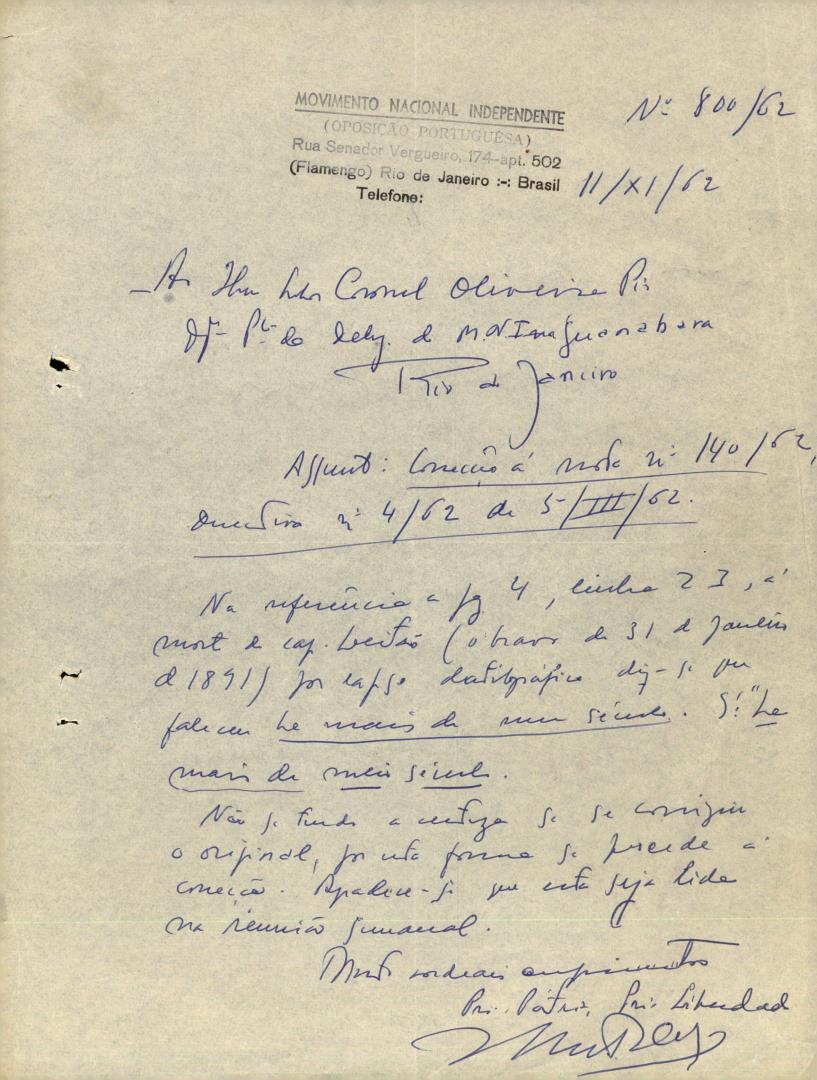 MOVIMENTO NACIONAL INDEPENDENTE
(OPOSIÇÃO PORTUGUÊSA)
Rua Senador Vergueiro, 174-apt. 502
(Flamengo) Rio de Janeiro :-: Brasil
Telefone:
Nº 800/62
11/XI/62
Coronel Oliveira Pio
da Deleg. do M.N.I. na Guanabara
Rio de Janeiro
Assunto: Correcção á nota nº 140/62,
Directiva nº 4/62 de 5/III/62.
Na referência a pg 4, linha 23, á
morte do cap. Leitão (o bravo de 31 de Janeiro
de 1891) por lapso dactilográfico diz-se que
faleceu há mais de um século. É: "há
mais de meio século.
Não se tendo a certeza se se corrigiu
o original, por esta forma se procede á
correcção. Agradece-se que esta seja lida
na reunião semanal.
Muito cordeais cumprimentos
Pró-Pátria, Pró-Liberdade